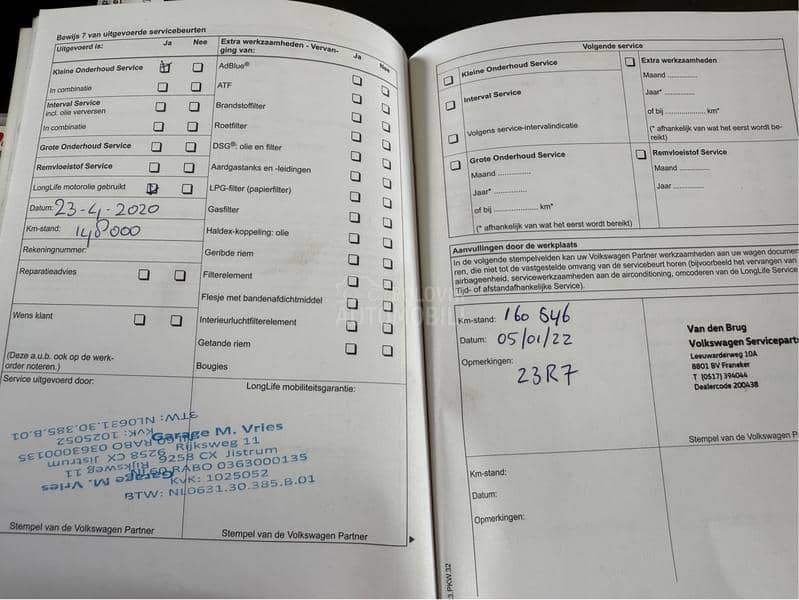 Bewijs 7 van uitgevoerde servicebeurten
Uitgevoerd is: Ja Nee
Kleine Onderhoud Service
In combinatie
Interval Service
incl. olie verversen
In combinatie
Grote Onderhoud Service
Remvloeistof Service
LongLife motorolie gebruikt
Datum: 23-4-2020
Km-stand: 148000
Rekeningnummer:
Reparatieadvies
Wens klant
(Deze a.u.b. ook op de werk-
order noteren.)
Service uitgevoerd door:
Extra werkzaamheden - Vervan-
ging van: Ja Nee
AdBlue®
ATF
Brandstoffilter
Roetfilter
DSG®: olie en filter
Aardgastanks en -leidingen
LPG-filter (papierfilter)
Gasfilter
Haldex-koppeling: olie
Geribde riem
Filterelement
Flesje met bandenafdichtmiddel
Interieurluchtfilterelement
Getande riem
Bougies
LongLife mobiliteitsgarantie:
Garage M. Vries
Rijksweg 11
9258 CX Jistrum
RABO 0363000135
KvK: 1025052
BTW: NL0631.30.385.B.01
Garage M. Vries
Rijksweg 11
9258 CX Jistrum
RABO 0363000135
KvK: 1025052
BTW: NL0631.30.385.B.01
Stempel van de Volkswagen Partner
Stempel van de Volkswagen Partner
Volgende service
Kleine Onderhoud Service
Interval Service
Volgens service-intervalindicatie
Grote Onderhoud Service
Maand
Jaar*
of bij km*
(* afhankelijk van wat het eerst wordt bereikt)
Extra werkzaamheden
Maand
Jaar*
of bij km*
(* afhankelijk van wat het eerst wordt be-
reikt)
Remvloeistof Service
Maand
Jaar
Aanvullingen door de werkplaats
In de volgende stempelvelden kan uw Volkswagen Partner werkzaamheden aan uw wagen documen
ren, die niet tot de vastgestelde omvang van de servicebeurt horen (bijvoorbeeld het vervangen van
airbageenheid, servicewerkzaamheden aan de airconditioning, omcoderen van de LongLife Service
Tijd- of afstandafhankelijke Service).
Km-stand: 160 546
Datum: 05/01/22
Opmerkingen:
23R7
Van den Brug
Volkswagen Servicepart
Leeuwarderweg 10A
8801 BV Franeker
T (0517) 394044
Dealercode 200438
Stempel van de Volkswagen P
Km-stand:
Datum:
Opmerkingen:
3.PKW.32